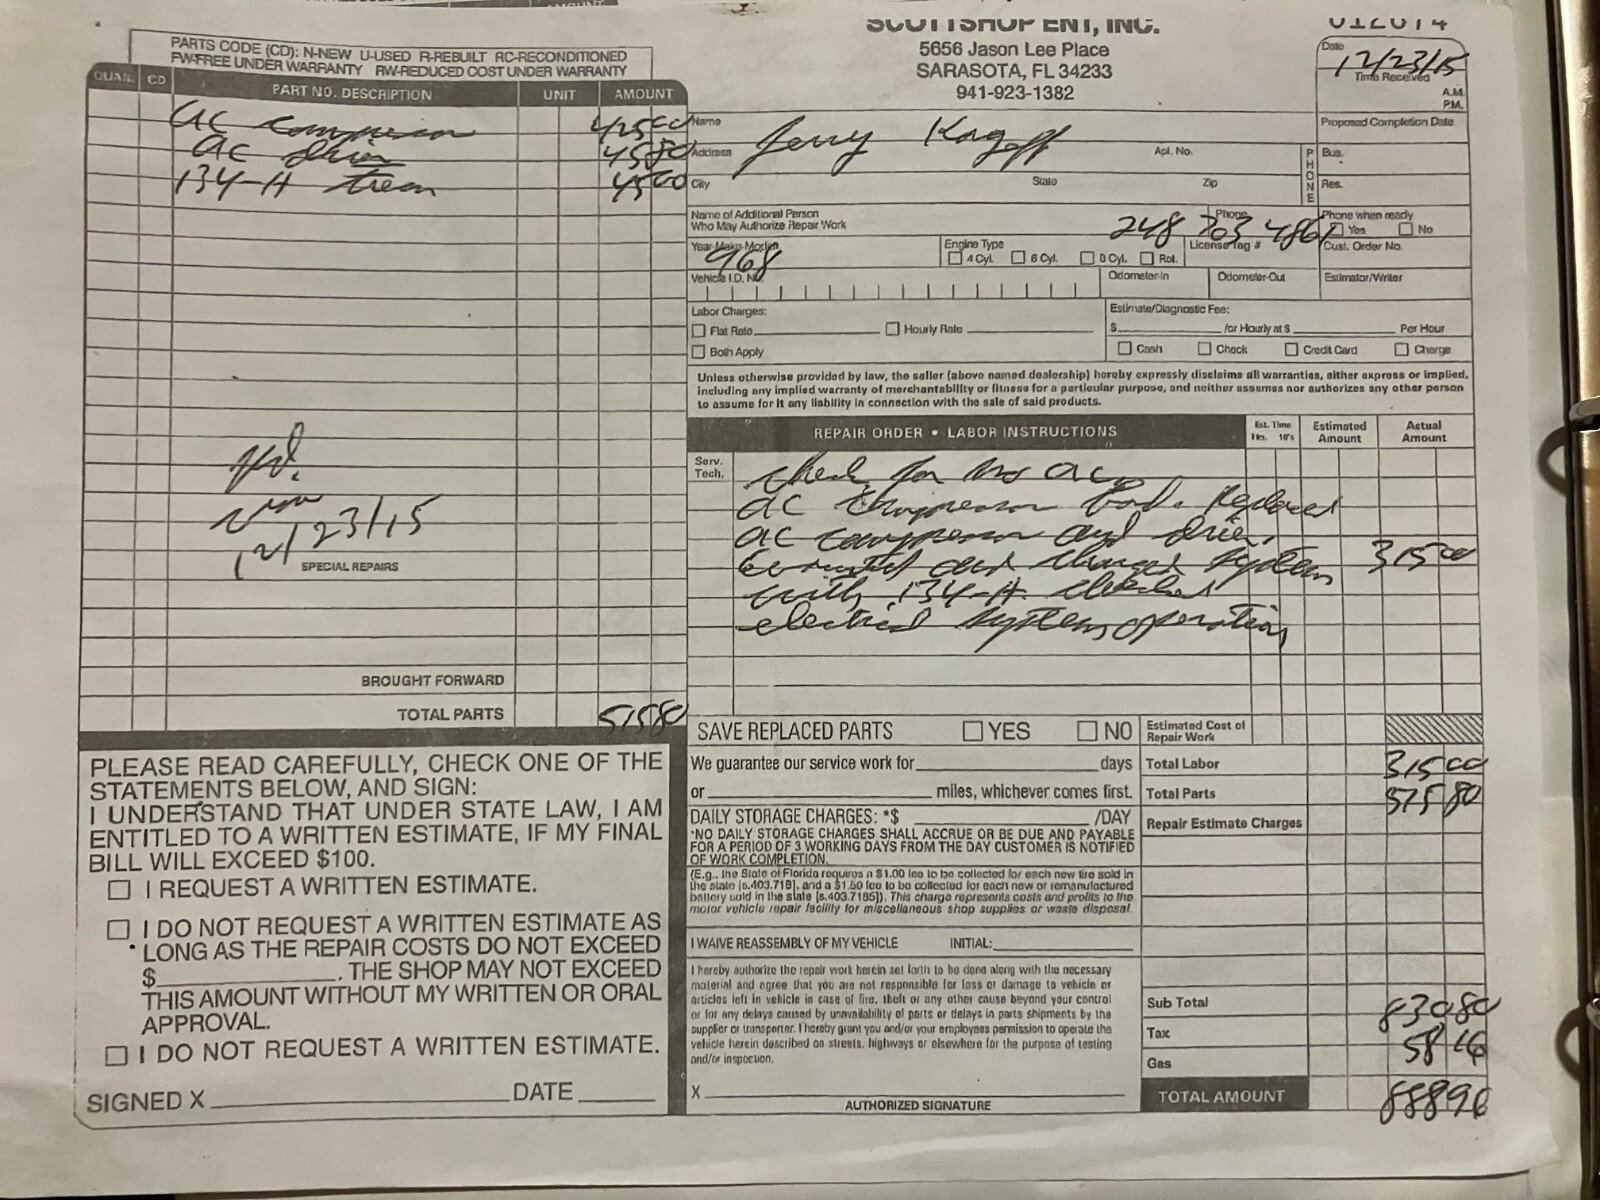 SCOTTSHOP ENT, INC.
5656 Jason Lee Place
SARASOTA, FL 34233
941-923-1382
012014
Date
12/23/15
Time Received
A.M.
P.M.
Proposed Completion Date
PARTS CODE (CD): N-NEW U-USED R-REBUILT RC-RECONDITIONED
FW-FREE UNDER WARRANTY RW-REDUCED COST UNDER WARRANTY
QUAN. CD PART NO. DESCRIPTION UNIT AMOUNT
AC compressor 425 00
AC drier 45 80
134-A freon 45 00
pd.
visa
12/23/15
SPECIAL REPAIRS
BROUGHT FORWARD
TOTAL PARTS 515 80
Name Jerry
Address Apt. No.
City State Zip
PHONE
Bus.
Res.
Name of Additional Person
Who May Authorize Repair Work
Phone
248 703 4861
Phone when ready
Yes No
Year-Make-Model
968
Engine Type
4 Cyl. 6 Cyl. 8 Cyl. Rot.
License Tag #
Cust. Order No.
Vehicle I.D. No.
Odometer-In Odometer-Out Estimator/Writer
Labor Charges:
Flat Rate Hourly Rate
Both Apply
Estimate/Diagnostic Fee:
$ for Hourly at $ Per Hour
Cash Check Credit Card Charge
Unless otherwise provided by law, the seller (above named dealership) hereby expressly disclaims all warranties, either express or implied,
including any implied warranty of merchantability or fitness for a particular purpose, and neither assumes nor authorizes any other person
to assume for it any liability in connection with the sale of said products.
REPAIR ORDER • LABOR INSTRUCTIONS
Est. Time
Hrs. 10's
Estimated
Amount
Actual
Amount
Serv.
Tech.
check for no ac,
AC compressor bad. Replaced
AC compressor and drier.
Evacuated and charged system 315 00
with 134-A. checked
electrical systems operation
SAVE REPLACED PARTS YES NO
Estimated Cost of
Repair Work
We guarantee our service work for days
or miles, whichever comes first.
DAILY STORAGE CHARGES: *$ /DAY
*NO DAILY STORAGE CHARGES SHALL ACCRUE OR BE DUE AND PAYABLE
FOR A PERIOD OF 3 WORKING DAYS FROM THE DAY CUSTOMER IS NOTIFIED
OF WORK COMPLETION.
(E.g., the State of Florida requires a $1.00 fee to be collected for each new tire sold in
the state [s.403.718], and a $1.50 fee to be collected for each new or remanufactured
battery sold in the state [s.403.7185]). This charge represents costs and profits to the
motor vehicle repair facility for miscellaneous shop supplies or waste disposal.
I WAIVE REASSEMBLY OF MY VEHICLE INITIAL:
I hereby authorize the repair work herein set forth to be done along with the necessary
material and agree that you are not responsible for loss or damage to vehicle or
articles left in vehicle in case of fire, theft or any other cause beyond your control
or for any delays caused by unavailability of parts or delays in parts shipments by the
supplier or transporter. I hereby grant you and/or your employees permission to operate the
vehicle herein described on streets, highways or elsewhere for the purpose of testing
and/or inspection.
X
AUTHORIZED SIGNATURE
Total Labor 315 00
Total Parts 515 80
Repair Estimate Charges
Sub Total 830 80
Tax 58 16
Gas
TOTAL AMOUNT 888 96
PLEASE READ CAREFULLY, CHECK ONE OF THE
STATEMENTS BELOW, AND SIGN:
I UNDERSTAND THAT UNDER STATE LAW, I AM
ENTITLED TO A WRITTEN ESTIMATE, IF MY FINAL
BILL WILL EXCEED $100.
I REQUEST A WRITTEN ESTIMATE.
I DO NOT REQUEST A WRITTEN ESTIMATE AS
LONG AS THE REPAIR COSTS DO NOT EXCEED
$ . THE SHOP MAY NOT EXCEED
THIS AMOUNT WITHOUT MY WRITTEN OR ORAL
APPROVAL.
I DO NOT REQUEST A WRITTEN ESTIMATE.
SIGNED X DATE